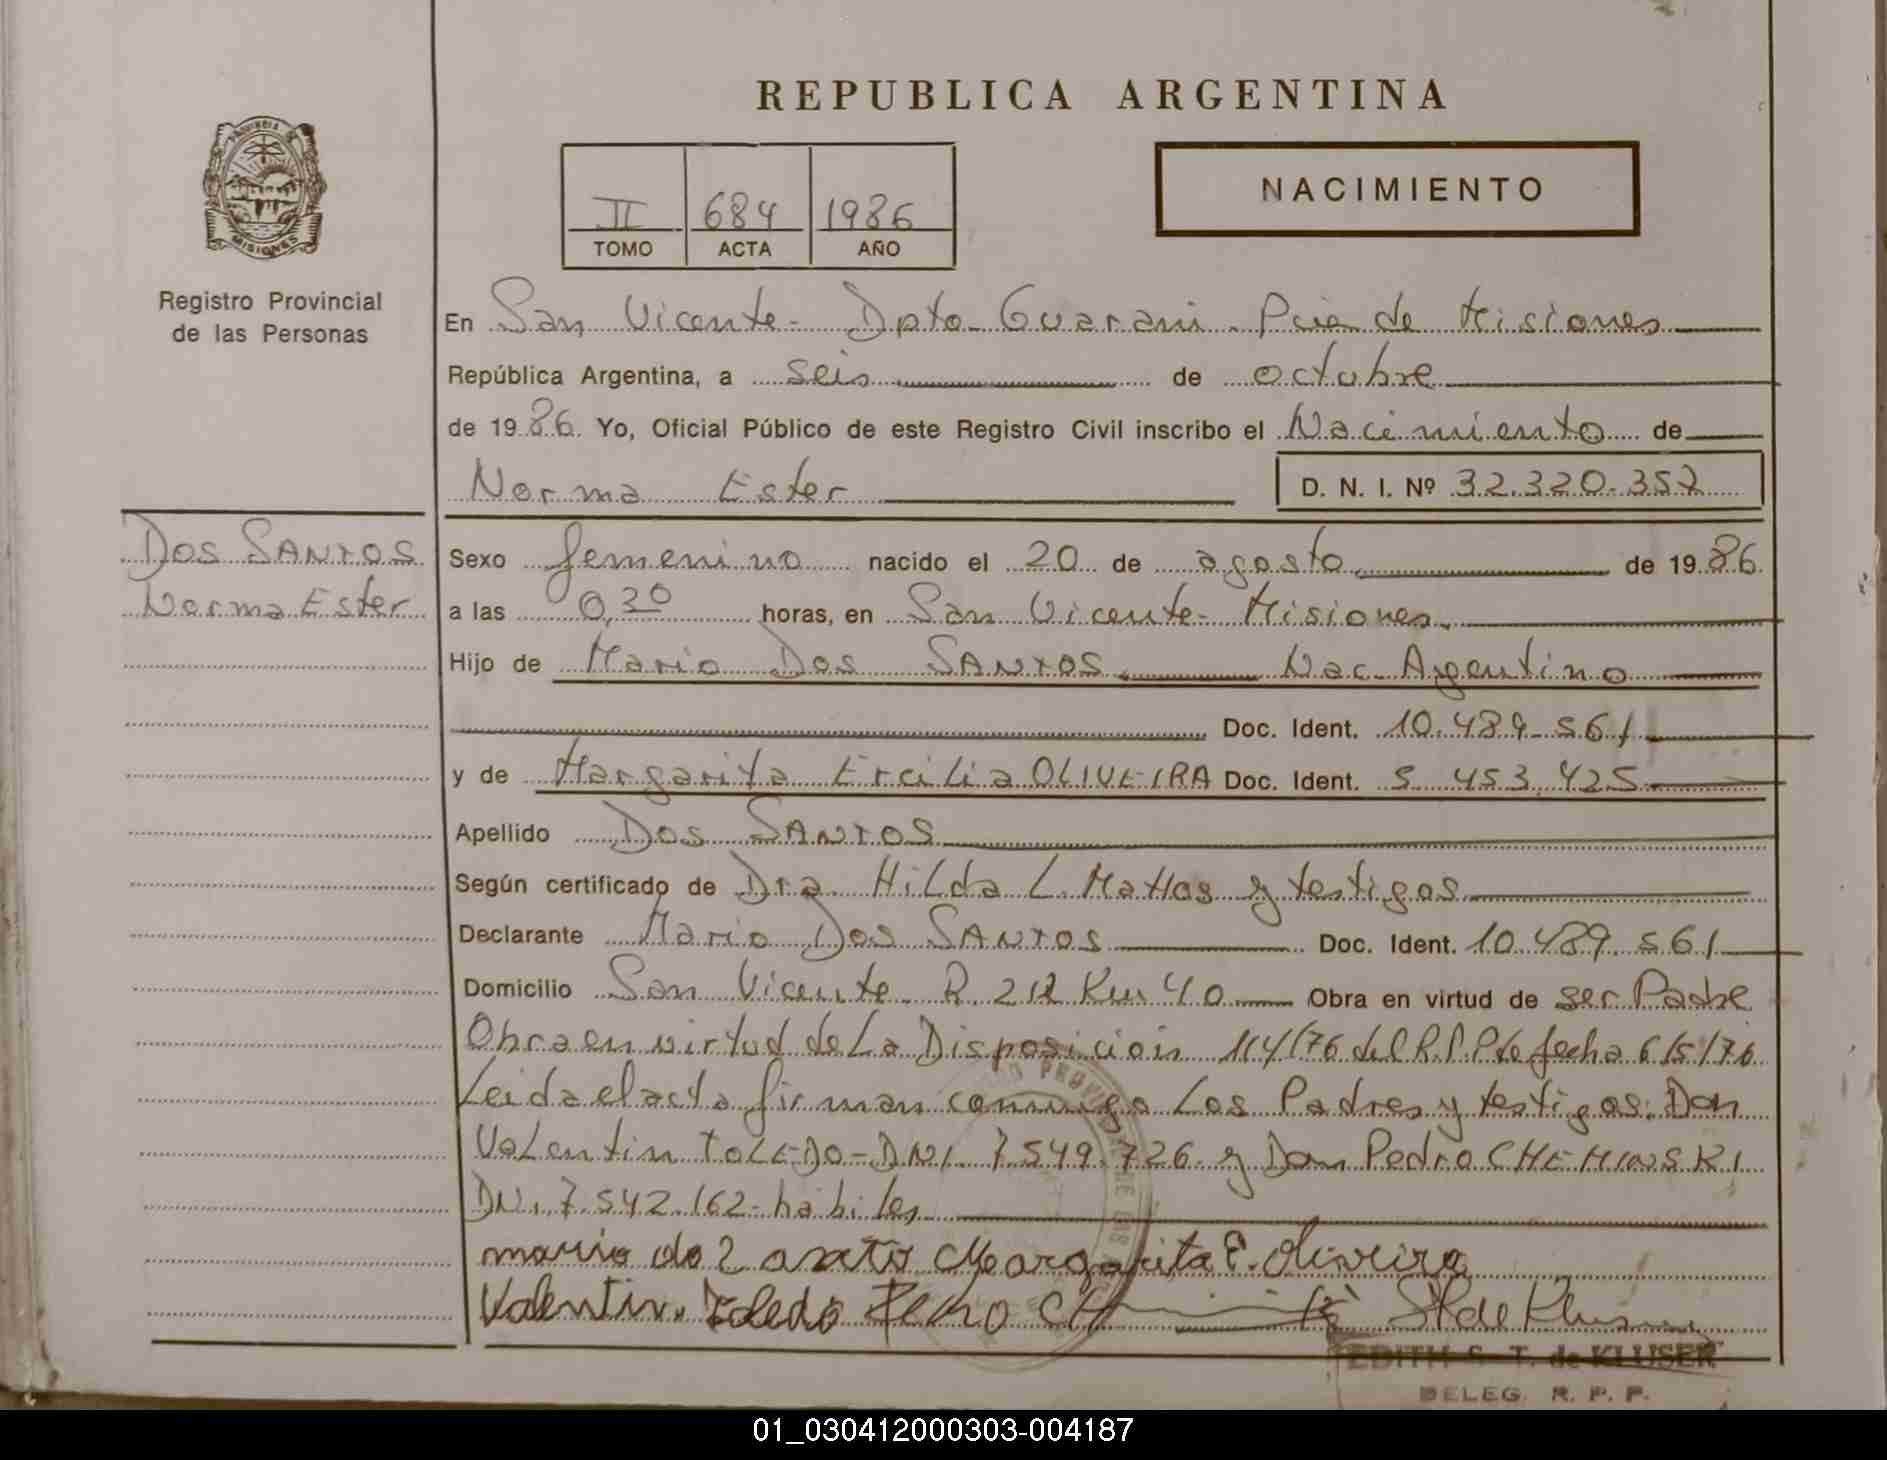 REPUBLICA ARGENTINA
PROVINCIA DE
MISIONES
Registro Provincial
de las Personas
II 684 1986
TOMO ACTA AÑO
NACIMIENTO
En San Vicente - Dpto Guarani - Pcia de Misiones
República Argentina, a seis de octubre
de 1986. Yo, Oficial Público de este Registro Civil inscribo el Nacimiento de
Norma Ester D. N. I. Nº 32.320.357
DOS SANTOS
Norma Ester
Sexo femenino nacido el 20 de agosto de 1986
a las 0,30 horas, en San Vicente - Misiones.
Hijo de Mario DOS SANTOS Nac. Argentino
Doc. Ident. 10.489.561
y de Margarita Ercilia OLIVEIRA Doc. Ident. 5.453.425
Apellido DOS SANTOS
Según certificado de Dra. Hilda L. Mattos y testigos
Declarante Mario DOS SANTOS Doc. Ident. 10.489.561
Domicilio San Vicente R. 212 Km 40 Obra en virtud de ser Padre
Obra en virtud de La Disposición 114/76 del R.P.P de fecha 6/5/76
Leida el acta firman conmigo Los Padres y testigos. Don
Valentin TOLEDO - DNI. 7.549.726 y Don Pedro CHEMINSKI
DNI. 7.542.162 - habiles
mario do Margarita E. Oliveira
Valentin. Toledo Pedro
EDITH S. T. de KLUSER
DELEG. R. P. P.
01_030412000303-004187